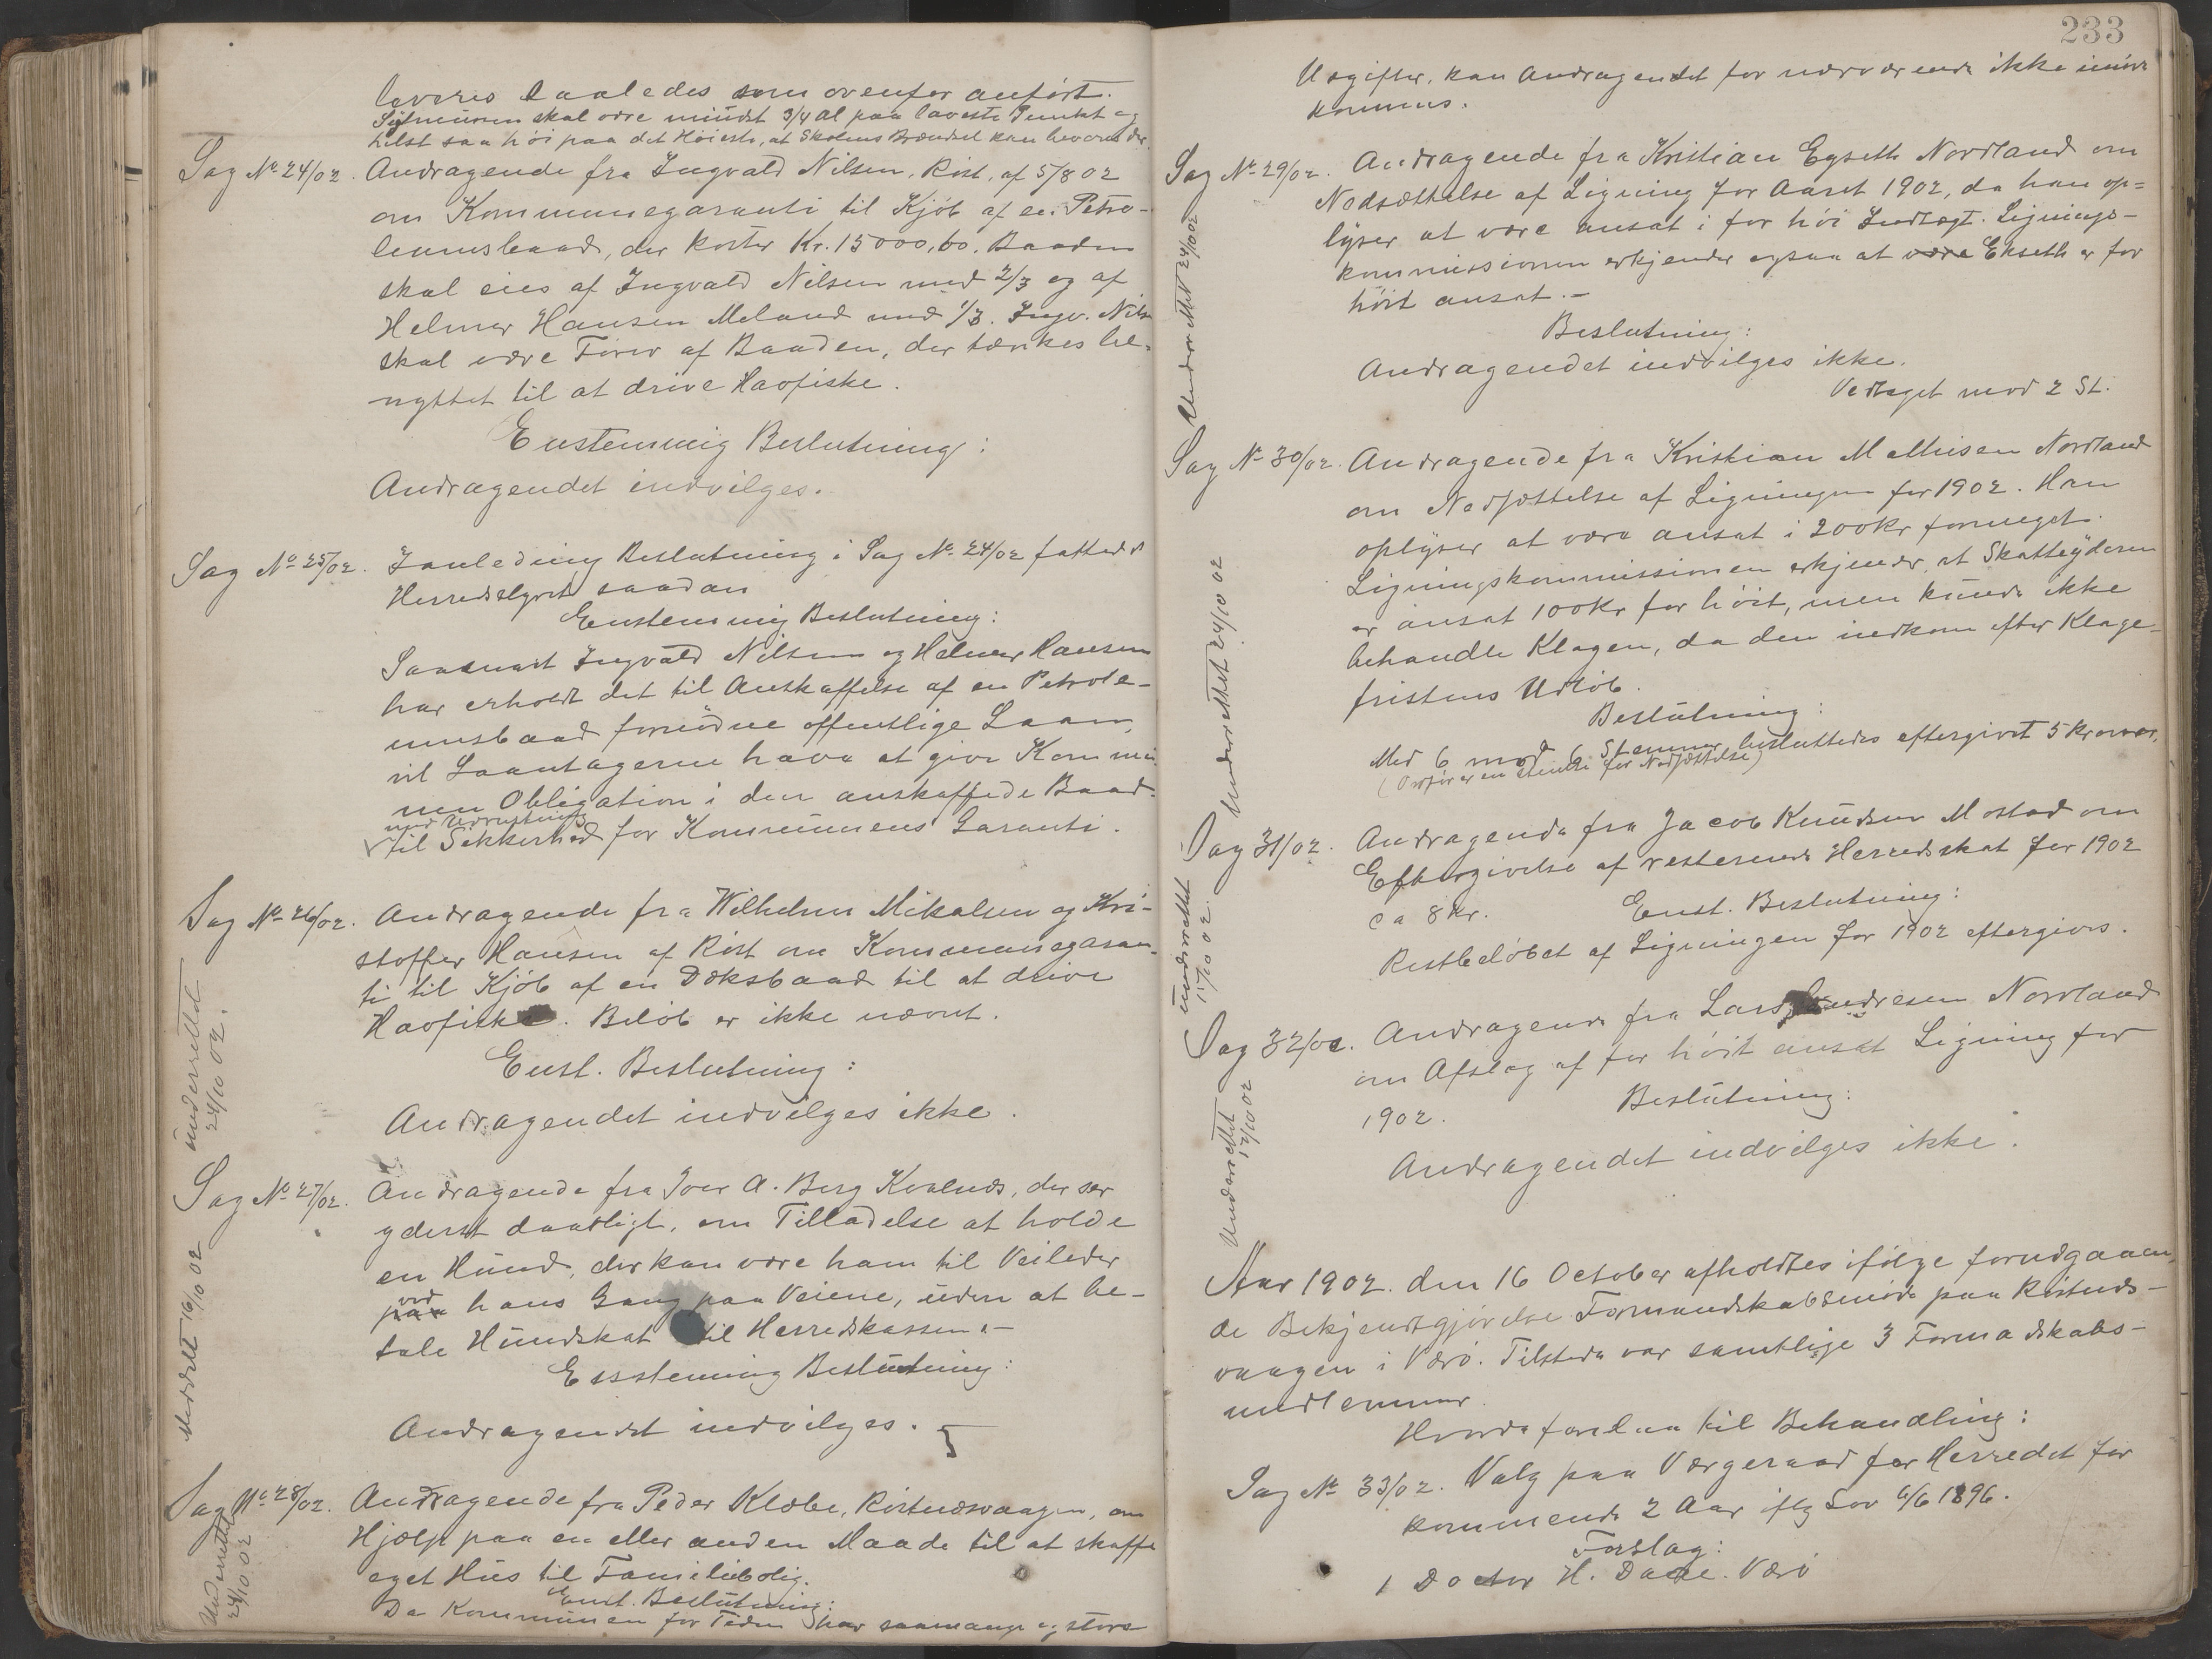 leveres saaledes som ovenfor anført.
Sifmuren skal være mindst 3/4 al paa laveste Punkt og
helst saa høi paa det Høieste, at Skolens Brændsel kan bevares der.
Sag No 24/02. Andragende fra Ingvald Nilsen, Røst, af 5/8 02
om Kommunegaranti til Kjøb af en Petro-
leumsbaad, der koster Kr. 15000,00. Baaden
skal eies af Ingvald Nilsen med 2/3 og af
Helmer Hansen Meland med 1/3. Ingv. Nils
skal være Fører af Baaden, der tænkes be-
nyttet til at drive Havfiske.
Enstemmig Beslutning:
Andragendet indvilges.
Sag No 25/02. I anledning Beslutning i Sag No 24/02 fattede
Herredstyret saadan
Enstemmig Beslutning:
Saasnart Ingvald Nilsen og Helmer Hansen
har erholdt det til Anskaffelse af en Petrole-
umsbaad fornødne offentlige Laan,
vil Laantagerne have at give Kommu-
nen Obligation i den anskaffede Baad
med Udrustning
til Sikkerhed for Kommunens Garanti.
Sag No 26/02. Andragende fra Wilhelm Mikalsen og Kri-
stoffer Hansen af Røst om Kommunegaran-
ti til Kjøb af en Dæksbaad til at drive
Havfiske. Beløb er ikke nævnt.
Enst. Beslutning:
Andragendet indvilges ikke.
underrettet
24/10 02.
Sag No 27/02. Andragende fra Joer A. Berg Kvalnæs, der ser
yderst daarligt, om Tilladelse at holde
en Hund, der kan være ham til Veileder
ved
paa hans Gang paa Veiene, uden at be-
tale Hundskat til Herredskassen.-
Enstemmig Beslutning:
Andragendet indvilges.
Meddelt 16/10 02
Sag No 28/02. Andragende fra Peder Klæbo, Røstnæsvaagen, om
Hjælp paa en eller anden Maade til at skaffe
eget Hus til Familiebolig.
Enst. Beslutning:
Da Kommunen for Tiden har saamange og store
Underrettet
24/10 02
233
Udgifter, kan Andragendet for nærværende ikke imøde
kommes.
Sag No 29/02. Andragende fra Kristian Egseth Nordland om
Nedsættelse af Ligning for Aaret 1902, da han op=
lyser at være ansat i for høi Indtægt. Lignings-
kommissionen erkjender ogsaa at være Ekseth er for
høit ansat.-
Beslutning:
Andragendet indvilges ikke.
Vedtaget mod 2 St.
Underrettet 24/10 02
Sag No 30/02. Andragende fra Kristian Mathisen Nordland
om Nedsættelse af Ligningen for 1902. Han
oplyser at være ansat i 200 kr formeget.
Ligningskommissionen erkjender, at Skatteyderen
er ansat 100 Kr for høit, men kunde ikke
behandle Klagen, da den indkom efter Klage-
fristens Udløb.
Beslutning:
Med 6 mod 6 Stemmer besluttedes eftergivet 5 kroner.
(Ordføreren stemte for Nedsættelse)
Underrettet 24/10 02
Sag 31/02. Andragende fra Jacob Knudsen Mostad om
Eftergivelse af resterende Herredsskat for 1902
ca 8 kr. Enst. Beslutning:
Restbeløbet af Ligningen for 1902 eftergives.
underrettet
17/10 02.
Sag 32/02. Andragende fra Lars Andresen Nordland
om Afslag af for høit ansat Ligning for
1902. Beslutning:
Andragendet indvilges ikke.
Underrettet
17/10 02
Aar 1902. den 16 October afholdtes ifølge forudgaaen
de Bekjendtgjørelse Formandskabsmøde paa Røstnæs-
vaagen i Værø. Tilstede var samtlige 3 Formadskabs-
medlemmer.
Hvorda forelaa til Behandling:
Sag No 33/02. Valg paa Værgeraad for Herredet for
kommende 2 Aar iflg Lov 6/6 1896.
Forslag:
1 Doctor H. Daae. Værø